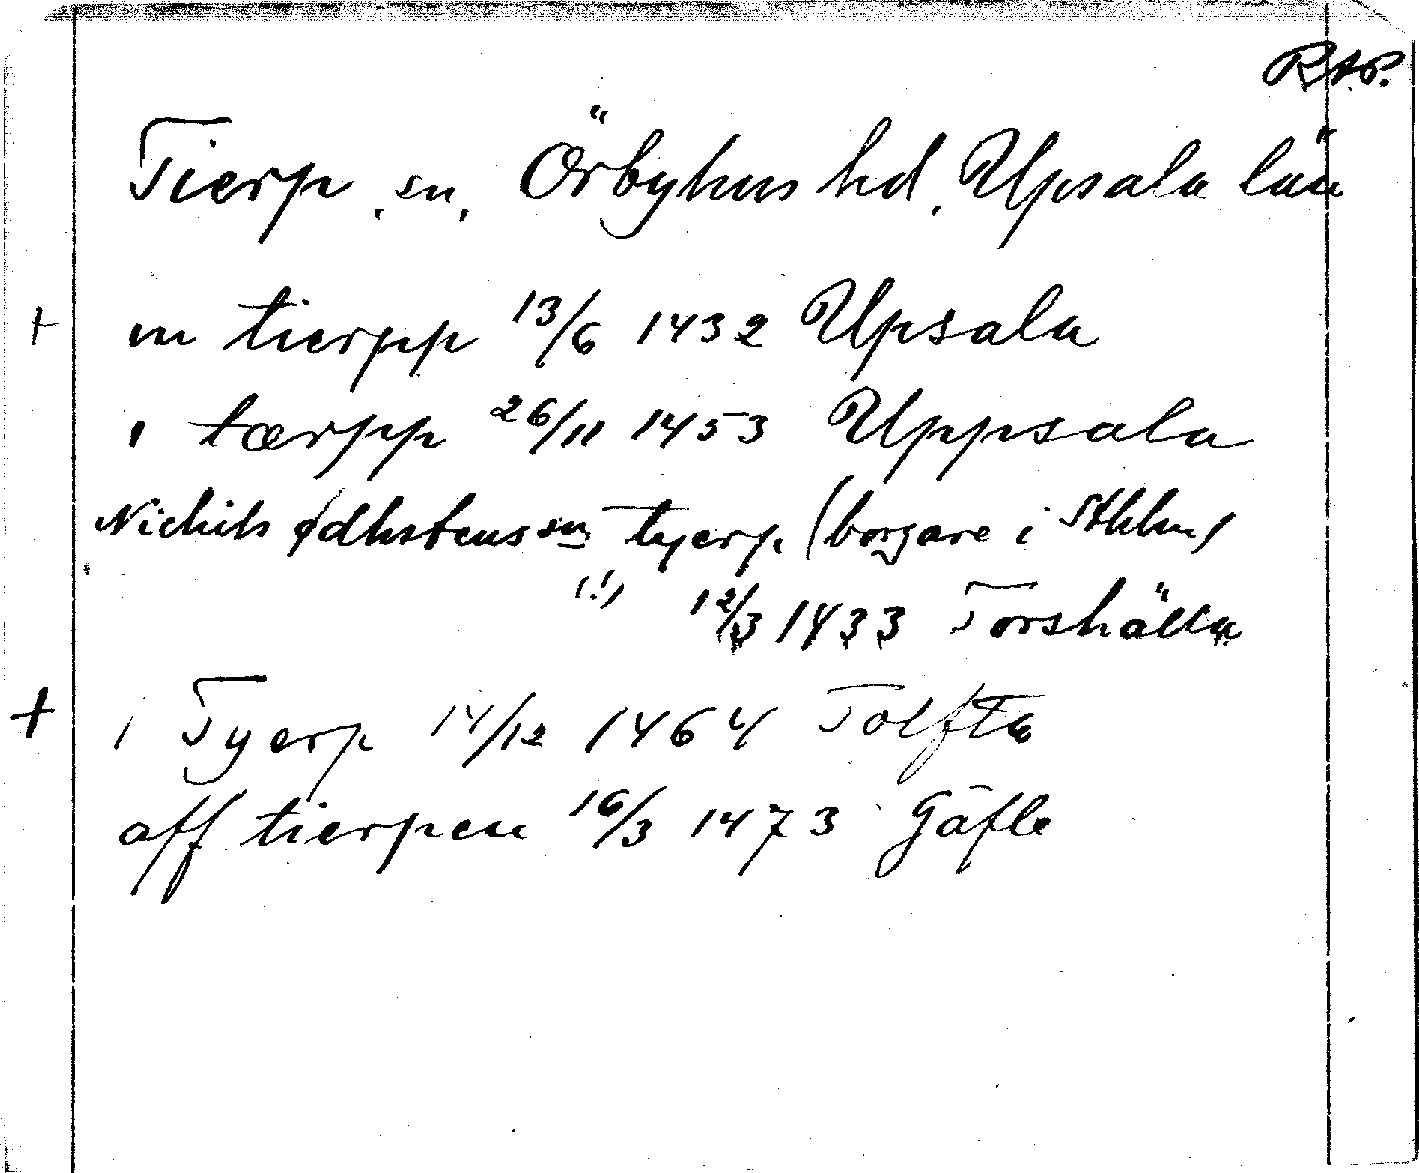 RAP.
Tierp, sn, Örbyhus hd, Upsala län
+ in tierpp 13/6 1432 Upsala
i tærpp 26/11 1453 Uppsala
Nichils ødhstens sn tyerp (borgare i Sthlm)
(!) 12/3 1433 Torshälla
+ i Tyerp 14/12 1464 Tolfta
aff tierpen 16/3 1473 Gäfle